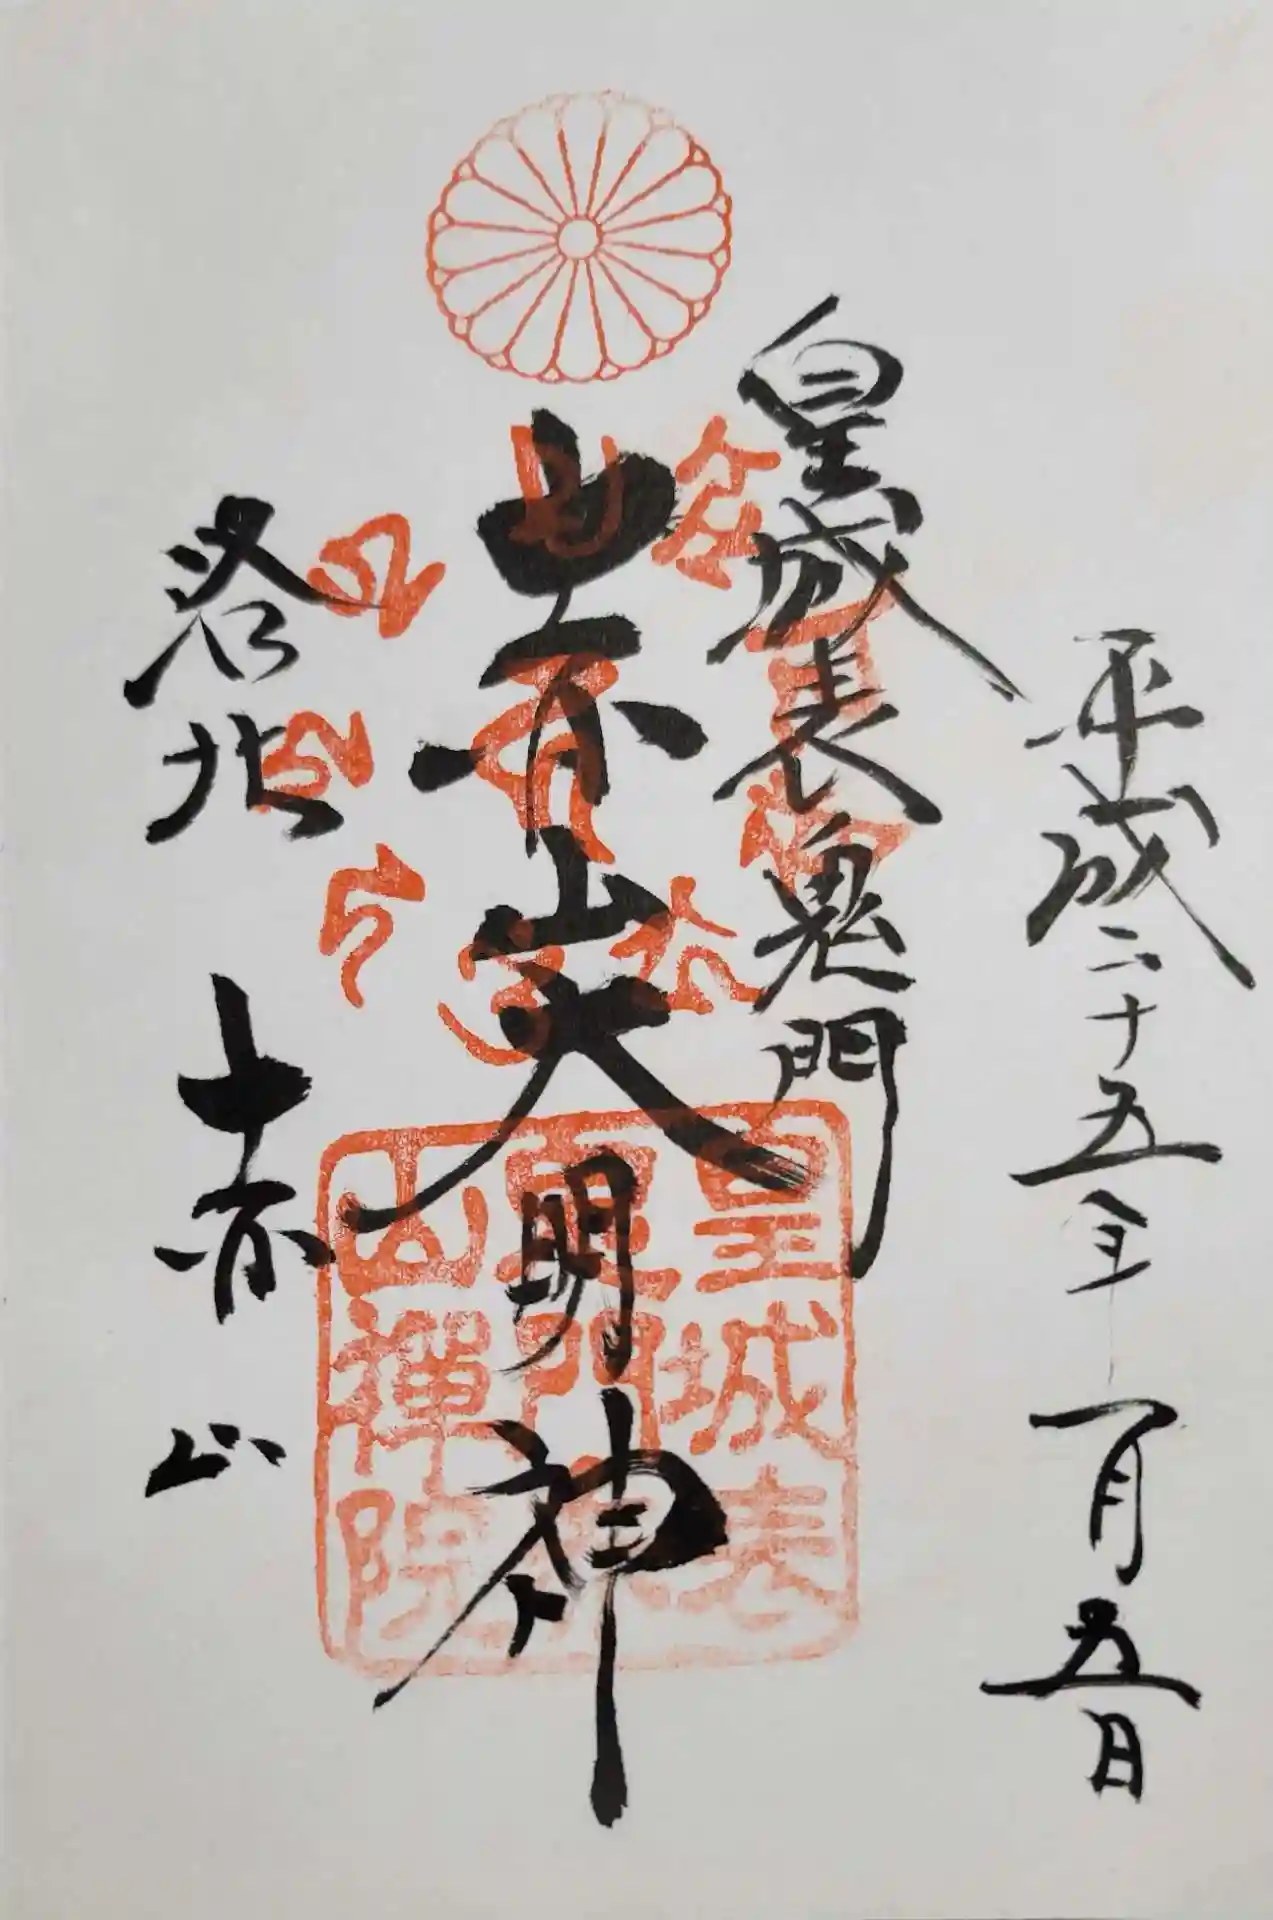 平成二十五年一月五日
皇城表鬼門
赤山大明神
洛北 赤山
皇城表
鬼門
山禅院